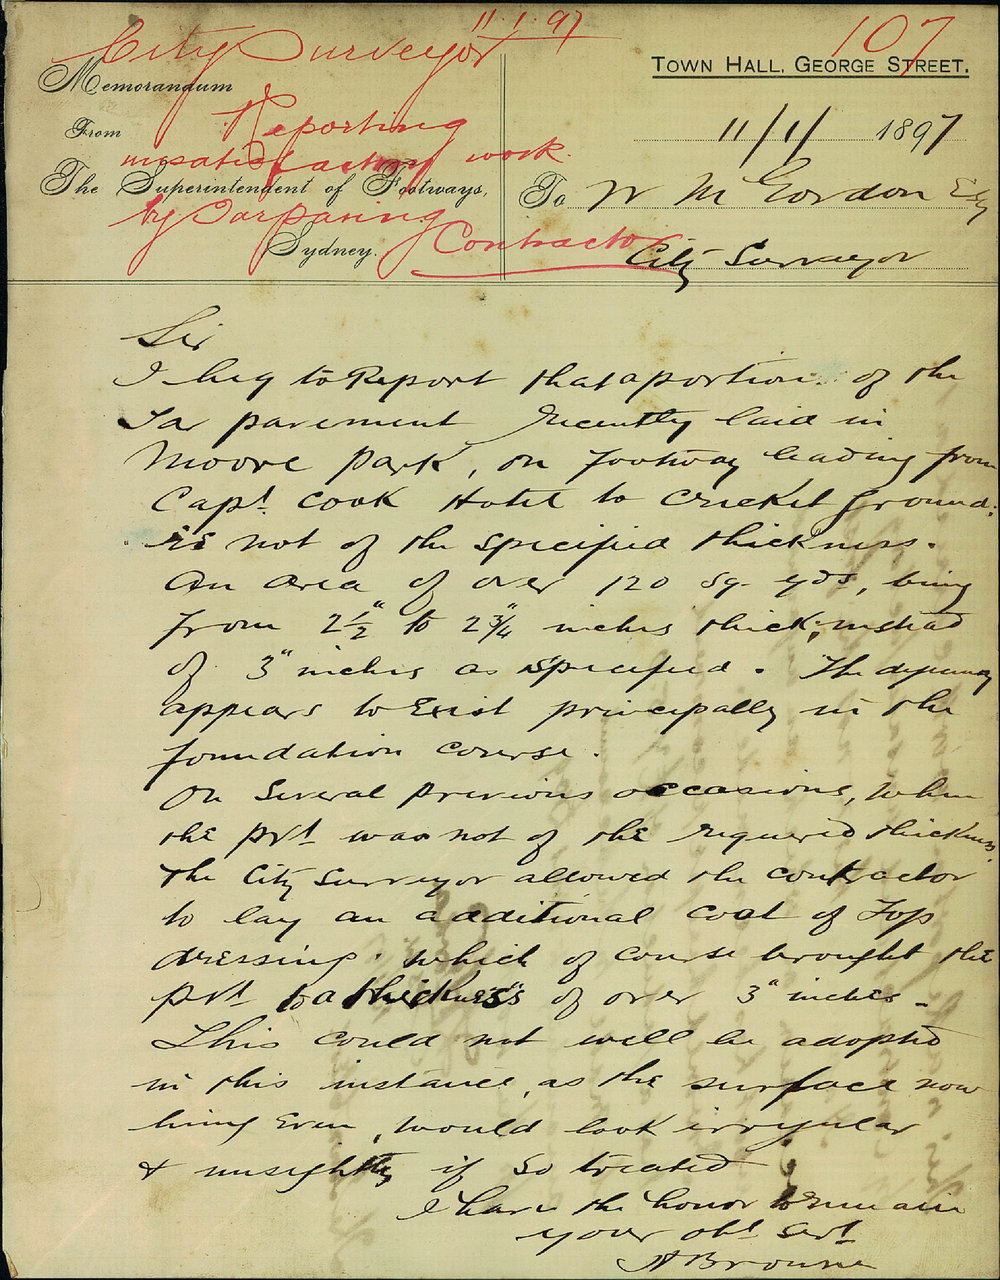 11.1.97
107
City Surveyor
Memorandum
TOWN HALL, GEORGE STREET.
From
Reporting
11/1/1897
unsatisfactory work
The Superintendent of Footways,
To W M Gordon Esq
by Tarpaving
Contractor
Sydney.
City Surveyor
Sir
I beg to Report that a portion of the
Tar pavement recently laid in
Moore Park, on footway leading from
Capt. Cook Hotel to Cricket Ground.
is not of the specified thickness.
An area of over 120 sq. yds, being
from 2½" to 2¾" inches thick, instead
of 3" inches as specified. The
appears to Exist principally in the
foundation course.
On several previous occasions, when
the pvt was not of the required thickness,
the City Surveyor allowed the contractor
to lay an additional coat of Top
dressing. which of course brought the
pvt to a thickness of over 3" inches -
This could not well be adopted
in this instance, as the surface now
being Even, would look irregular
& unsightly if so treated
I have the honor to remain
your obt. Servt
A Browne